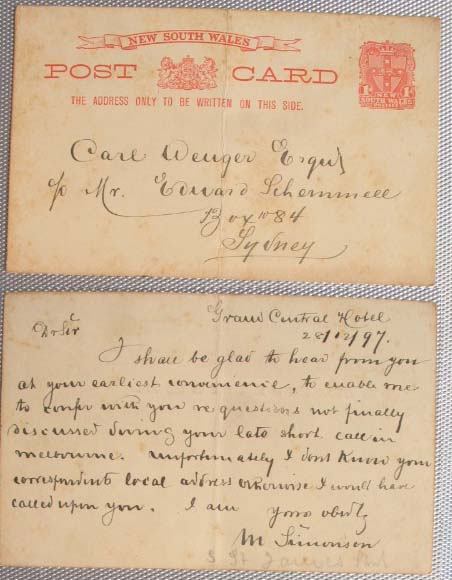 NEW SOUTH WALES
POST CARD
THE ADDRESS ONLY TO BE WRITTEN ON THIS SIDE.
NEW
1D SOUTH WALES 1D
Carl Wenger Esqu
c/o Mr. Edward Schemmell
Box 84
Sydney
Grand Central Hotel
28/12/97.
Dr Sir
I shall be glad to hear from you
at your earliest convenience, to enable me
to confer with you re questions not finally
discussed during your late short call in
melbourne. unfortunately I dont Know your
correspondents local address otherwise I would have
called upon you. I am yours obdtly
M Simonson